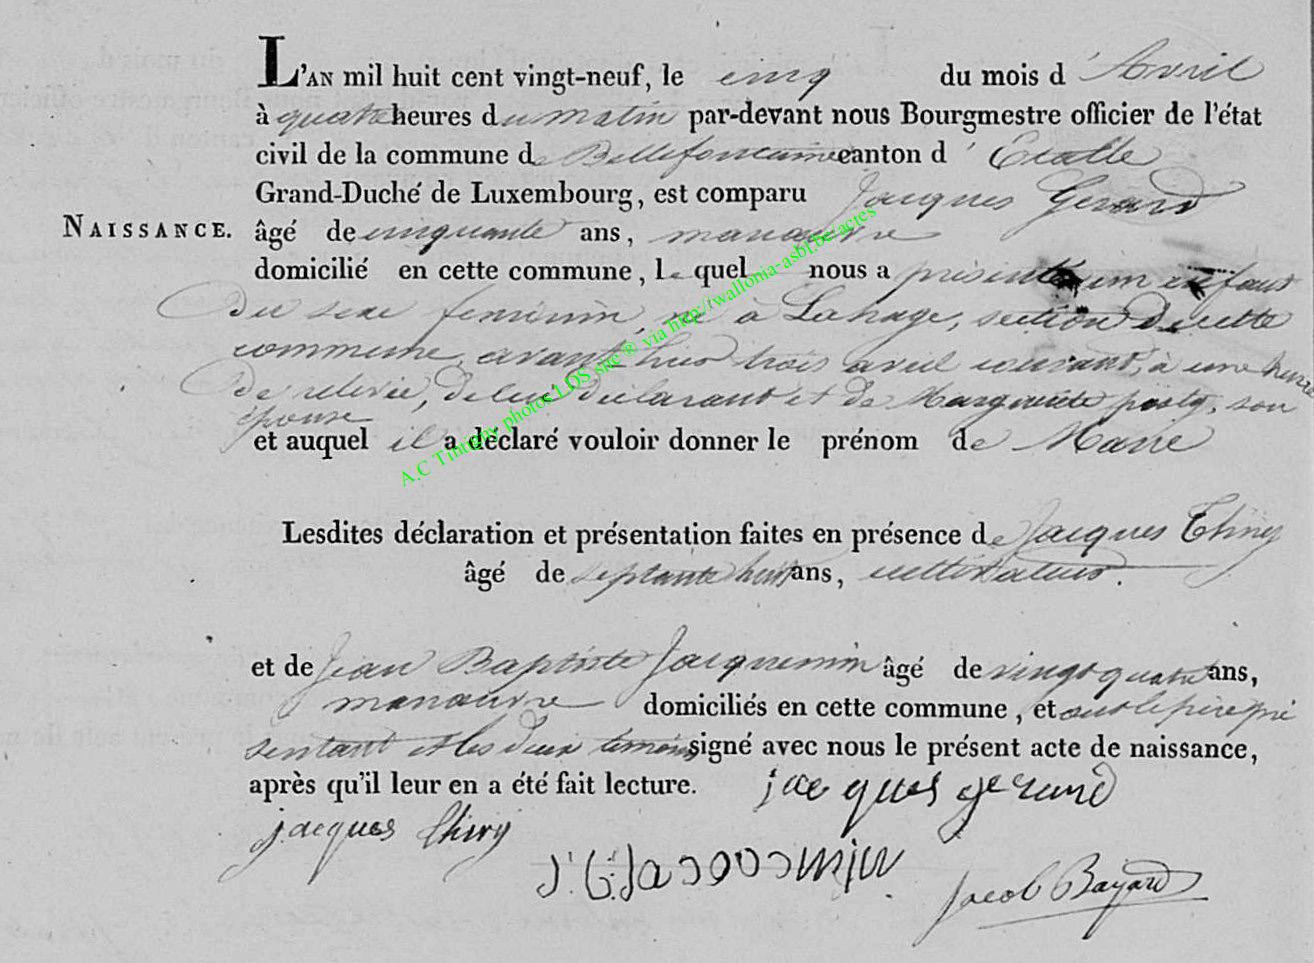 L'AN mil huit cent vingt-neuf, le cinq du mois d'Avril
à quatre heures du matin par-devant nous Bourgmestre officier de l'état
civil de la commune de Bellefontaine canton d'Etalle
Grand-Duché de Luxembourg, est comparu Jacques Gerard
NAISSANCE.
âgé de cinquante ans, manœuvre
domicilié en cette commune, le quel nous a présenté un enfant
du sexe feminin, né à Lahage, section de cette
commune, avant hier trois avril courant, à une heure
de relevée, de lui déclarant et de Marguerite posty, son
épouse
et auquel il a déclaré vouloir donner le prénom de Marie
Lesdites déclaration et présentation faites en présence de Jacques Thiry
âgé de septante huit ans, cultivateur.
et de Jean Baptiste Jacquemin âgé de vingt quatre ans,
manœuvre domiciliés en cette commune, et ont le père pré
sentant et les deux temoins signé avec nous le présent acte de naissance,
après qu'il leur en a été fait lecture. jacques gerard
jacques thiry
J. B. Jacocmin
Jacob Bayard
A.C Tintigny photos LDS site ® via http://wallonia-asbl.be/actes